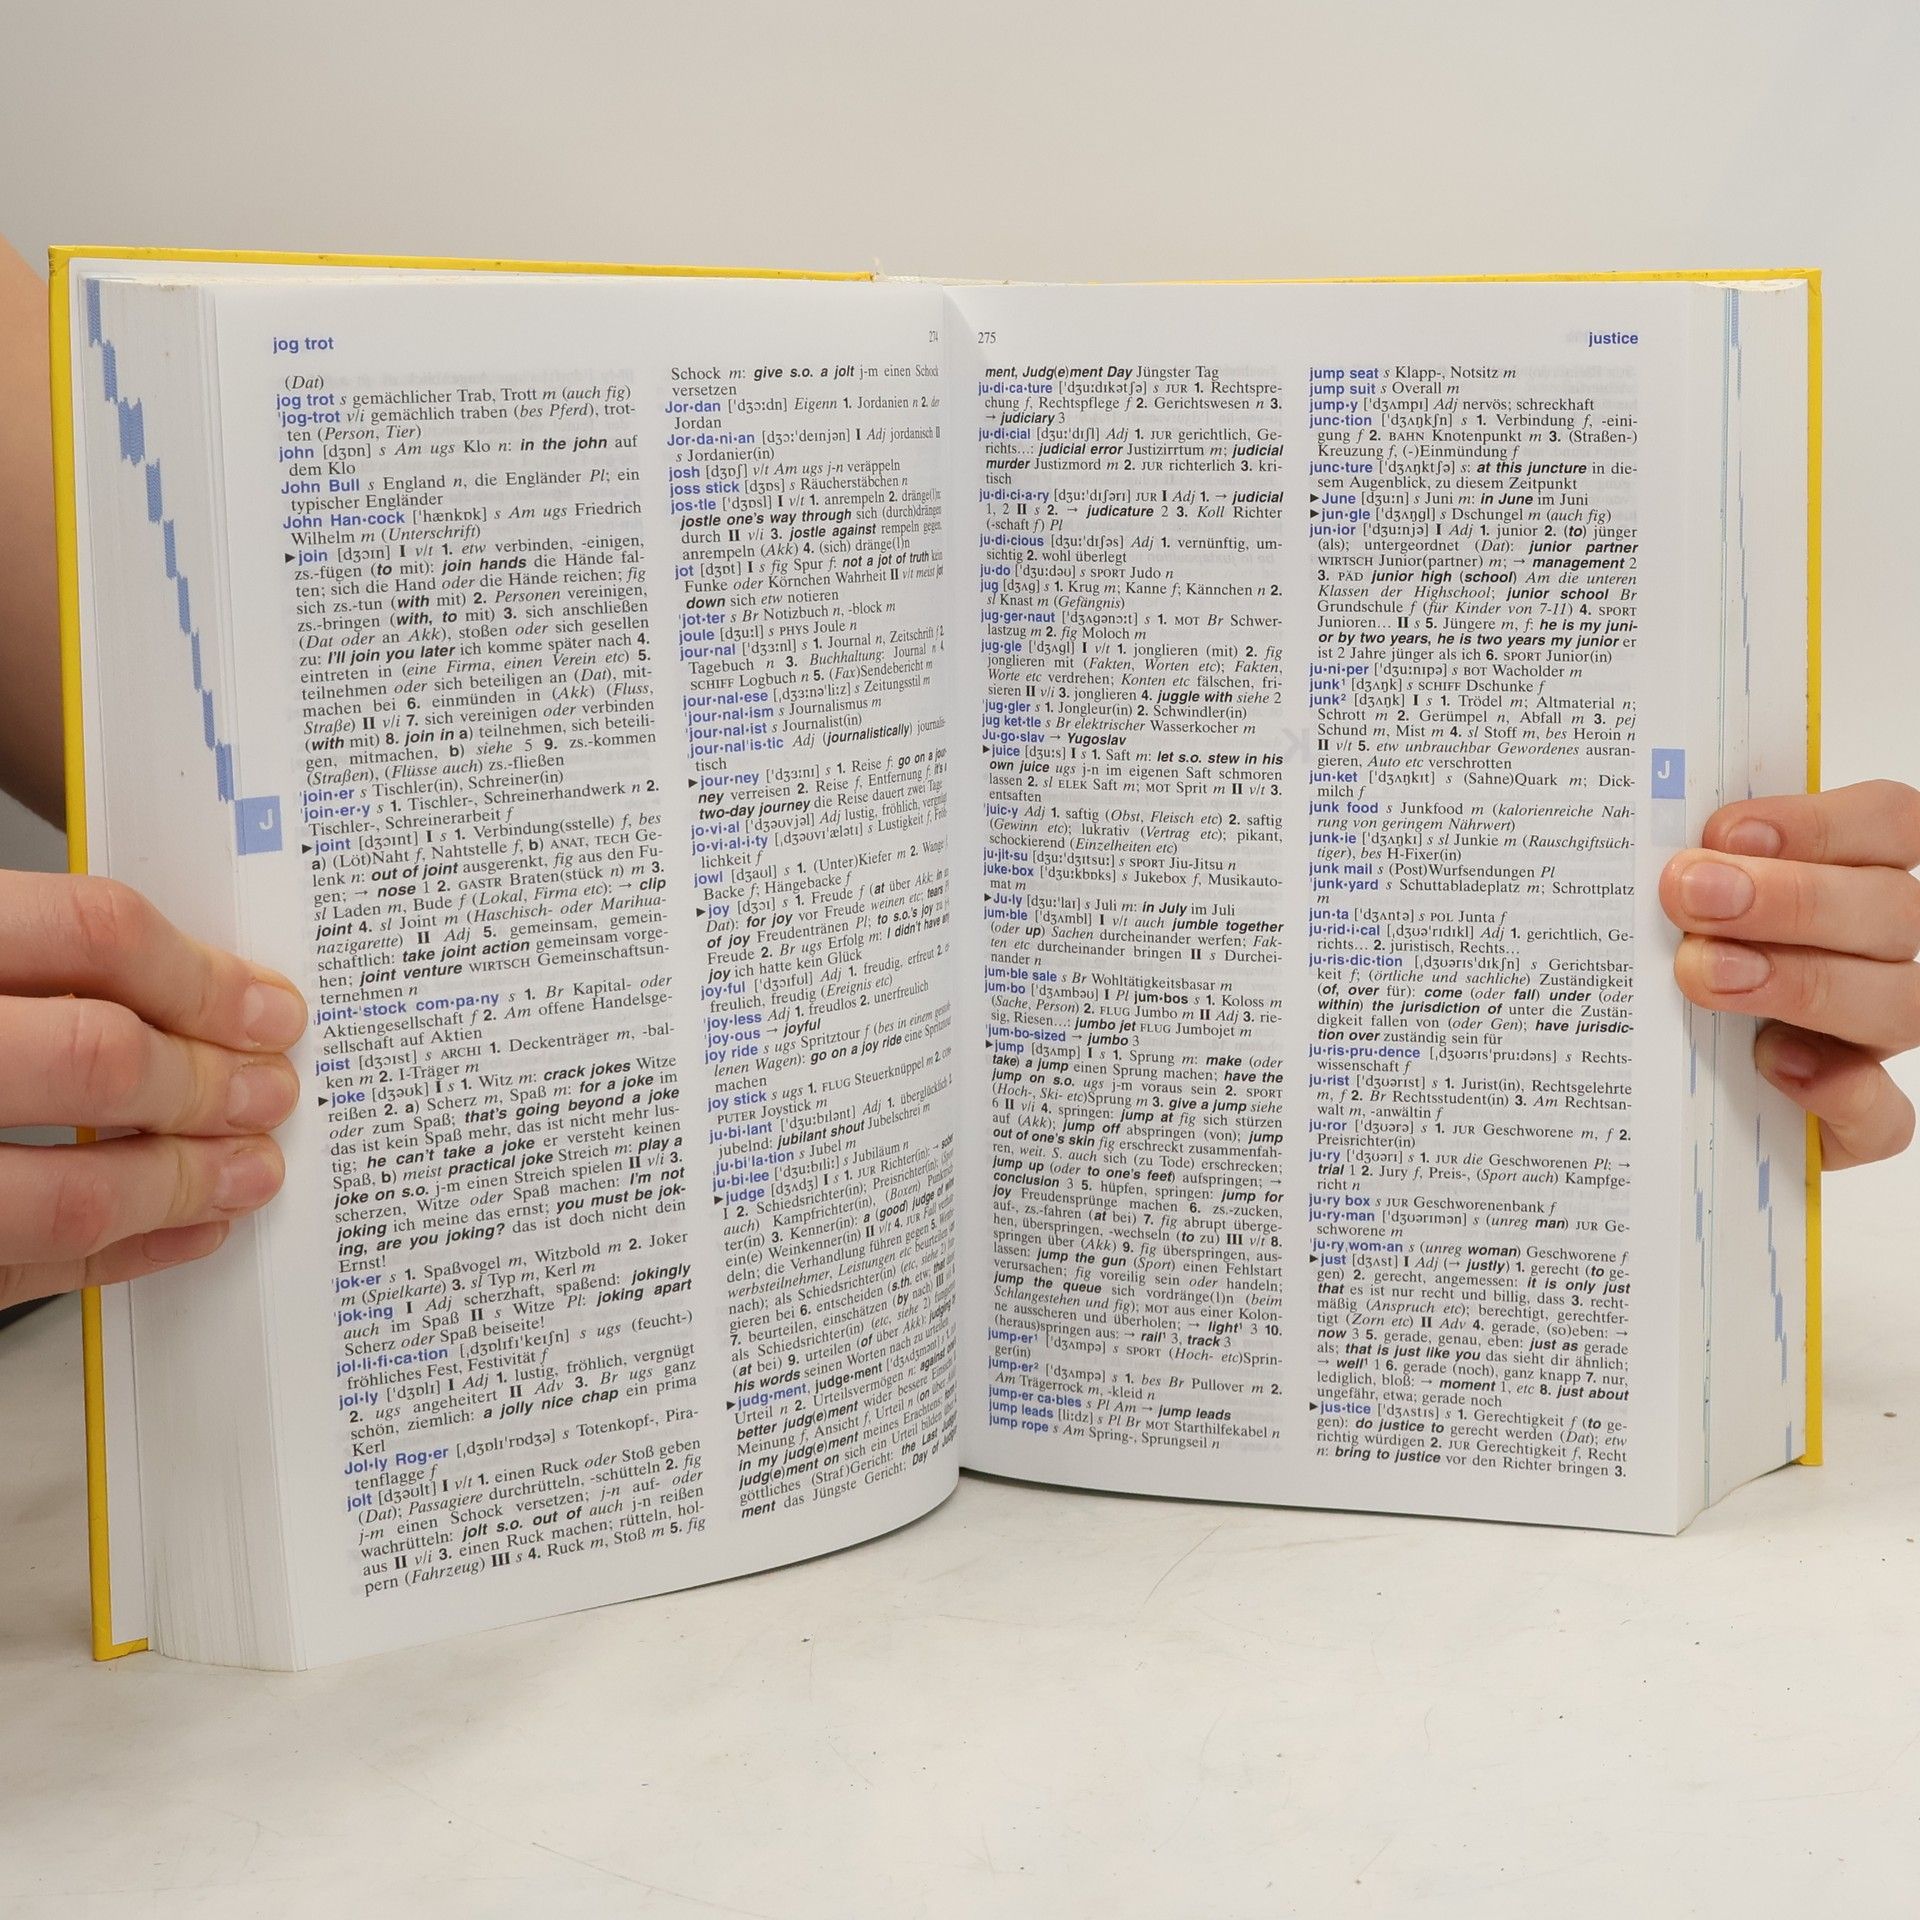 jog trot
274
(Dat)
jog trot s gemächlicher Trab, Trott m (auch fig)
'jog-trot v/i gemächlich traben (bes Pferd), trot-
ten (Person, Tier)
john [dʒɒn] s Am ugs Klo n: in the john auf
dem Klo
John Bull s England n, die Engländer Pl; ein
typischer Engländer
John Han·cock ['hænkɒk] s Am ugs Friedrich
Wilhelm m (Unterschrift)
►join [dʒɔɪn] I v/t 1. etw verbinden, -einigen,
zs.-fügen (to mit): join hands die Hände fal-
ten; sich die Hand oder die Hände reichen; fig
sich zs.-tun (with mit) 2. Personen vereinigen,
zs.-bringen (with, to mit) 3. sich anschließen
(Dat oder an Akk), stoßen oder sich gesellen
zu: I'll join you later ich komme später nach 4.
eintreten in (eine Firma, einen Verein etc) 5.
teilnehmen oder sich beteiligen an (Dat), mit-
machen bei 6. einmünden in (Akk) (Fluss,
Straße) II v/i 7. sich vereinigen oder verbinden
(with mit) 8. join in a) teilnehmen, sich beteili-
gen, mitmachen, b) siehe 5 9. zs.-kommen
(Straßen), (Flüsse auch) zs.-fließen
'join·er s Tischler(in), Schreiner(in)
'join·er·y s 1. Tischler-, Schreinerhandwerk n 2.
Tischler-, Schreinerarbeit f
►joint [dʒɔɪnt] I s 1. Verbindung(sstelle) f, bes
a) (Löt)Naht f, Nahtstelle f, b) ANAT, TECH Ge-
lenk n: out of joint ausgerenkt, fig aus den Fu-
gen; → nose 1 2. GASTR Braten(stück n) m 3.
sl Laden m, Bude f (Lokal, Firma etc): → clip
joint 4. sl Joint m (Haschisch- oder Marihua-
nazigarette) II Adj 5. gemeinsam, gemein-
schaftlich: take joint action gemeinsam vorge-
hen; joint venture WIRTSCH Gemeinschaftsun-
ternehmen n
'joint-'stock com·pa·ny s 1. Br Kapital- oder
Aktiengesellschaft f 2. Am offene Handelsge-
sellschaft auf Aktien
joist [dʒɔɪst] s ARCHI 1. Deckenträger m, -bal-
ken m 2. I-Träger m
►joke [dʒəʊk] I s 1. Witz m: crack jokes Witze
reißen 2. a) Scherz m, Spaß m: for a joke im
oder zum Spaß; that's going beyond a joke
das ist kein Spaß mehr, das ist nicht mehr lus-
tig; he can't take a joke er versteht keinen
Spaß, b) meist practical joke Streich m: play a
joke on s.o. j-m einen Streich spielen II v/i 3.
scherzen, Witze oder Spaß machen: I'm not
joking ich meine das ernst; you must be jok-
ing, are you joking? das ist doch nicht dein
Ernst!
'jok·er s 1. Spaßvogel m, Witzbold m 2. Joker
m (Spielkarte) 3. sl Typ m, Kerl m
'jok·ing I Adj scherzhaft, spaßend: jokingly
auch im Spaß II s Witze Pl: joking apart
Scherz oder Spaß beiseite!
jol·li·fi·ca·tion [ˌdʒɒlɪfɪ'keɪʃn] s ugs (feucht-)
fröhliches Fest, Festivität f
jol·ly ['dʒɒlɪ] I Adj 1. lustig, fröhlich, vergnügt
2. ugs angeheitert II Adv 3. Br ugs ganz
schön, ziemlich: a jolly nice chap ein prima
Kerl
Jol·ly Rog·er [ˌdʒɒlɪ'rɒdʒə] s Totenkopf-, Pira-
tenflagge f
jolt [dʒəʊlt] I v/t 1. einen Ruck oder Stoß geben
(Dat); Passagiere durchrütteln, -schütteln 2. fig
j-m einen Schock versetzen; j-n auf- oder
wachrütteln: jolt s.o. out of auch j-n reißen
aus II v/i 3. einen Ruck machen; rütteln, hol-
pern (Fahrzeug) III s 4. Ruck m, Stoß m 5. fig
Schock m: give s.o. a jolt j-m einen Schock
versetzen
Jor·dan ['dʒɔːdn] Eigenn 1. Jordanien n 2. der
Jordan
Jor·da·ni·an [dʒɔː'deɪnjən] I Adj jordanisch II
s Jordanier(in)
josh [dʒɒʃ] v/t Am ugs j-n veräppeln
joss stick [dʒɒs] s Räucherstäbchen n
jos·tle ['dʒɒsl] I v/t 1. anrempeln 2. dränge(l)n:
jostle one's way through sich (durch)drängen
durch II v/i 3. jostle against rempeln gegen,
anrempeln (Akk) 4. (sich) dränge(l)n
jot [dʒɒt] I s fig Spur f: not a jot of truth kein
Funke oder Körnchen Wahrheit II v/t meist jot
down sich etw notieren
'jot·ter s Br Notizbuch n, -block m
joule [dʒuːl] s PHYS Joule n
jour·nal ['dʒɜːnl] s 1. Journal n, Zeitschrift f 2.
Tagebuch n 3. Buchhaltung: Journal n 4.
SCHIFF Logbuch n 5. (Fax)Sendebericht m
jour·nal·ese [ˌdʒɜːnə'liːz] s Zeitungsstil m
'jour·nal·ism s Journalismus m
'jour·nal·ist s Journalist(in)
ˌjour·nal'is·tic Adj (journalistically) journalis-
tisch
►jour·ney ['dʒɜːnɪ] s 1. Reise f: go on a jour-
ney verreisen 2. Reise f, Entfernung f: it's a
two-day journey die Reise dauert zwei Tage
jo·vi·al ['dʒəʊvjəl] Adj lustig, fröhlich, vergnügt
jo·vi·al·i·ty [ˌdʒəʊvɪ'ælətɪ] s Lustigkeit f, Fröh-
lichkeit f
jowl [dʒaʊl] s 1. (Unter)Kiefer m 2. Wange f,
Backe f; Hängebacke f
►joy [dʒɔɪ] s 1. Freude f (at über Akk; in an
Dat): for joy vor Freude weinen etc; tears
of joy Freudentränen Pl; to s.o.'s joy zu j-s
Freude 2. Br ugs Erfolg m: I didn't have any
joy ich hatte kein Glück
joy·ful ['dʒɔɪfʊl] Adj 1. freudig, erfreut 2. er-
freulich, freudig (Ereignis etc)
'joy·less Adj 1. freudlos 2. unerfreulich
'joy·ous → joyful
joy ride s ugs Spritztour f (bes in einem gestoh-
lenen Wagen): go on a joy ride eine Spritztour
machen
joy stick s ugs 1. FLUG Steuerknüppel m 2. COM-
PUTER Joystick m
ju·bi·lant ['dʒuːbɪlənt] Adj 1. überglücklich 2.
jubelnd: jubilant shout Jubelschrei m
ˌju·bi'la·tion s Jubel m
ju·bi·lee ['dʒuːbɪliː] s Jubiläum n
►judge [dʒʌdʒ] I s 1. JUR Richter(in): → sober
I 2. Schiedsrichter(in); Preisrichter(in), (Sport
auch) Kampfrichter(in), (Boxen) Punktrich-
ter(in) 3. Kenner(in): a (good) judge of wine
ein(e) Weinkenner(in) II v/t 4. JUR Fall verhan-
deln; die Verhandlung führen gegen 5. Wettbe-
werbsteilnehmer, Leistungen etc beurteilen
nach); als Schiedsrichter(in) (etc, siehe 2) fun-
gieren bei 6. entscheiden (s.th. etw; that dass)
7. beurteilen, einschätzen (by nach) III v/i 8.
als Schiedsrichter(in) (etc, siehe 2) fungieren
(at bei) 9. urteilen (of über Akk): judging by
his words seinen Worten nach zu urteilen
►judg·ment, judge·ment ['dʒʌdʒmənt] s 1.
Urteil n 2. Urteilsvermögen n: against one's
better judg(e)ment wider bessere Einsicht 3.
Meinung f, Ansicht f, Urteil n (on über Akk):
in my judg(e)ment meines Erachtens; form a
judg(e)ment on sich ein Urteil bilden über 4.
göttliches (Straf)Gericht: the Last Judg(e)-
ment das Jüngste Gericht; Day of Judg(e)-
J
275
justice
ment, Judg(e)ment Day Jüngster Tag
ju·di·ca·ture ['dʒuːdɪkətʃə] s JUR 1. Rechtspre-
chung f, Rechtspflege f 2. Gerichtswesen n 3.
→ judiciary 3
ju·di·cial [dʒuː'dɪʃl] Adj 1. JUR gerichtlich, Ge-
richts...: judicial error Justizirrtum m; judicial
murder Justizmord m 2. JUR richterlich 3. kri-
tisch
ju·di·ci·a·ry [dʒuː'dɪʃərɪ] JUR I Adj 1. → judicial
1, 2 II s 2. → judicature 2 3. Koll Richter
(-schaft f) Pl
ju·di·cious [dʒuː'dɪʃəs] Adj 1. vernünftig, um-
sichtig 2. wohl überlegt
ju·do ['dʒuːdəʊ] s SPORT Judo n
jug [dʒʌg] s 1. Krug m; Kanne f; Kännchen n 2.
sl Knast m (Gefängnis)
jug·ger·naut ['dʒʌgənɔːt] s 1. MOT Br Schwer-
lastzug m 2. fig Moloch m
jug·gle ['dʒʌgl] I v/t 1. jonglieren (mit) 2. fig
jonglieren mit (Fakten, Worten etc); Fakten,
Worte etc verdrehen; Konten etc fälschen, fri-
sieren II v/i 3. jonglieren 4. juggle with siehe 2
'jug·gler s 1. Jongleur(in) 2. Schwindler(in)
jug ket·tle s Br elektrischer Wasserkocher m
Ju·go·slav → Yugoslav
►juice [dʒuːs] I s 1. Saft m: let s.o. stew in his
own juice ugs j-n im eigenen Saft schmoren
lassen 2. sl ELEK Saft m; MOT Sprit m II v/t 3.
entsaften
'juic·y Adj 1. saftig (Obst, Fleisch etc) 2. saftig
(Gewinn etc); lukrativ (Vertrag etc); pikant,
schockierend (Einzelheiten etc)
ju·jit·su [dʒuː'dʒɪtsuː] s SPORT Jiu-Jitsu n
juke·box ['dʒuːkbɒks] s Jukebox f, Musikauto-
mat m
►Ju·ly [dʒuː'laɪ] s Juli m: in July im Juli
jum·ble ['dʒʌmbl] I v/t auch jumble together
(oder up) Sachen durcheinander werfen; Fak-
ten etc durcheinander bringen II s Durchei-
nander n
jum·ble sale s Br Wohltätigkeitsbasar m
jum·bo ['dʒʌmbəʊ] I Pl jum·bos s 1. Koloss m
(Sache, Person) 2. FLUG Jumbo m II Adj 3. rie-
sig, Riesen...: jumbo jet FLUG Jumbojet m
'jum·bo-sized → jumbo 3
►jump [dʒʌmp] I s 1. Sprung m: make (oder
take) a jump einen Sprung machen; have the
jump on s.o. ugs j-m voraus sein 2. SPORT
(Hoch-, Ski- etc)Sprung m 3. give a jump siehe
6 II v/i 4. springen: jump at fig sich stürzen
auf (Akk); jump off abspringen (von); jump
out of one's skin fig erschreckt zusammenfah-
ren, weit. S. auch sich (zu Tode) erschrecken;
jump up (oder to one's feet) aufspringen; →
conclusion 3 5. hüpfen, springen: jump for
joy Freudensprünge machen 6. zs.-zucken,
auf-, zs.-fahren (at bei) 7. fig abrupt überge-
hen, überspringen, -wechseln (to zu) III v/t 8.
springen über (Akk) 9. fig überspringen, aus-
lassen: jump the gun (Sport) einen Fehlstart
verursachen; fig voreilig sein oder handeln;
jump the queue sich vordränge(l)n (beim
Schlangestehen und fig); MOT aus einer Kolon-
ne ausscheren und überholen; → light¹ 3 10.
(heraus)springen aus: → rail¹ 3, track 3
jump·er¹ ['dʒʌmpə] s SPORT (Hoch- etc)Sprin-
ger(in)
jump·er² ['dʒʌmpə] s 1. bes Br Pullover m 2.
Am Trägerrock m, -kleid n
jump·er ca·bles s Pl Am → jump leads
jump leads [liːdz] s Pl Br MOT Starthilfekabel n
jump rope s Am Spring-, Sprungseil n
jump seat s Klapp-, Notsitz m
jump suit s Overall m
jump·y ['dʒʌmpɪ] Adj nervös; schreckhaft
junc·tion ['dʒʌŋkʃn] s 1. Verbindung f, -eini-
gung f 2. BAHN Knotenpunkt m 3. (Straßen-)
Kreuzung f, (-)Einmündung f
junc·ture ['dʒʌŋktʃə] s: at this juncture in die-
sem Augenblick, zu diesem Zeitpunkt
►June [dʒuːn] s Juni m: in June im Juni
►jun·gle ['dʒʌŋgl] s Dschungel m (auch fig)
jun·ior ['dʒuːnjə] I Adj 1. junior 2. (to) jünger
(als); untergeordnet (Dat): junior partner
WIRTSCH Junior(partner) m; → management 2
3. PÄD junior high (school) Am die unteren
Klassen der Highschool; junior school Br
Grundschule f (für Kinder von 7-11) 4. SPORT
Junioren... II s 5. Jüngere m, f: he is my juni-
or by two years, he is two years my junior er
ist 2 Jahre jünger als ich 6. SPORT Junior(in)
ju·ni·per ['dʒuːnɪpə] s BOT Wacholder m
junk¹ [dʒʌŋk] s SCHIFF Dschunke f
junk² [dʒʌŋk] I s 1. Trödel m; Altmaterial n;
Schrott m 2. Gerümpel n, Abfall m 3. pej
Schund m, Mist m 4. sl Stoff m, bes Heroin n
II v/t 5. etw unbrauchbar Gewordenes ausran-
gieren, Auto etc verschrotten
jun·ket ['dʒʌŋkɪt] s (Sahne)Quark m; Dick-
milch f
junk food s Junkfood m (kalorienreiche Nah-
rung von geringem Nährwert)
junk·ie ['dʒʌŋkɪ] s sl Junkie m (Rauschgiftsüch-
tiger), bes H-Fixer(in)
junk mail s (Post)Wurfsendungen Pl
'junk·yard s Schuttabladeplatz m; Schrottplatz
m
jun·ta ['dʒʌntə] s POL Junta f
ju·rid·i·cal [ˌdʒʊə'rɪdɪkl] Adj 1. gerichtlich, Ge-
richts... 2. juristisch, Rechts...
ju·ris·dic·tion [ˌdʒʊərɪs'dɪkʃn] s Gerichtsbar-
keit f; (örtliche und sachliche) Zuständigkeit
(of, over für): come (oder fall) under (oder
within) the jurisdiction of unter die Zustän-
digkeit fallen von (oder Gen); have jurisdic-
tion over zuständig sein für
ju·ris·pru·dence [ˌdʒʊərɪs'pruːdəns] s Rechts-
wissenschaft f
ju·rist ['dʒʊərɪst] s 1. Jurist(in), Rechtsgelehrte
m, f 2. Br Rechtsstudent(in) 3. Am Rechtsan-
walt m, -anwältin f
ju·ror ['dʒʊərə] s 1. JUR Geschworene m, f 2.
Preisrichter(in)
ju·ry ['dʒʊərɪ] s 1. JUR die Geschworenen Pl: →
trial 1 2. Jury f, Preis-, (Sport auch) Kampfge-
richt n
ju·ry box s JUR Geschworenenbank f
ju·ry·man ['dʒʊərɪmən] s (unreg man) JUR Ge-
schworene m
'ju·ryˌwom·an s (unreg woman) Geschworene f
►just [dʒʌst] I Adj (→ justly) 1. gerecht (to ge-
gen) 2. gerecht, angemessen: it is only just
that es ist nur recht und billig, dass 3. recht-
mäßig (Anspruch etc); berechtigt, gerechtfer-
tigt (Zorn etc) II Adv 4. gerade, (so)eben: →
now 3 5. gerade, genau, eben: just as gerade
als; that is just like you das sieht dir ähnlich;
→ well¹ 1 6. gerade (noch), ganz knapp 7. nur,
lediglich, bloß: → moment 1, etc 8. just about
ungefähr, etwa; gerade noch
►jus·tice ['dʒʌstɪs] s 1. Gerechtigkeit f (to ge-
gen): do justice to gerecht werden (Dat); etw
richtig würdigen 2. JUR Gerechtigkeit f, Recht
n: bring to justice vor den Richter bringen 3.
J